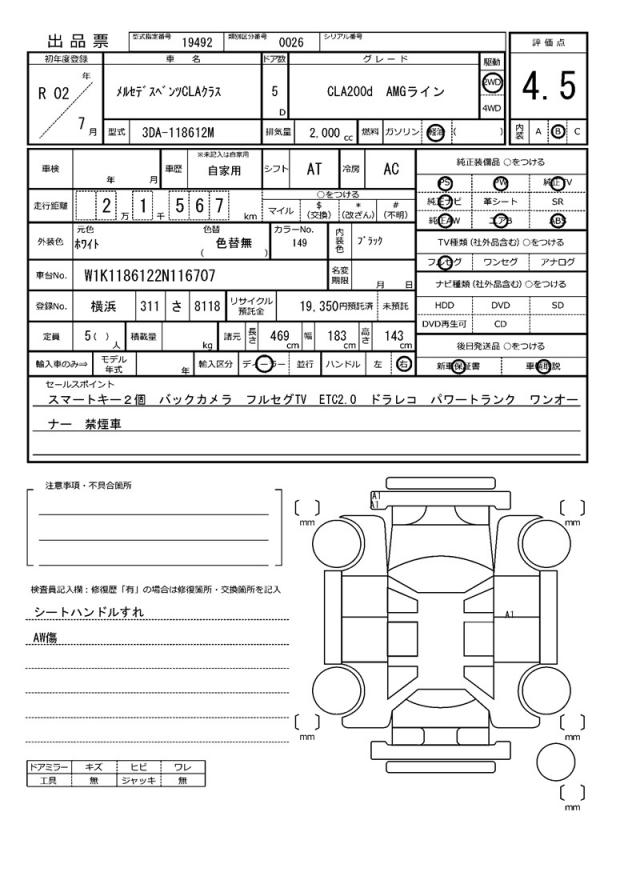 出品票 型式指定番号 19492 類別区分番号 0026 シリアル番号
初年度登録 車名 ドア数 グレード 駆動 評価点
R 02 年 7 月 ﾒﾙｾﾃﾞｽﾍﾞﾝﾂCLAｸﾗｽ 5 D CLA200d AMGライン 2WD 4WD 4.5
型式 3DA-118612M 排気量 2,000 cc 燃料 ガソリン 軽油 ( ) 内装 A B C
車検 年 月 車歴 ※未記入は自家用 自家用 シフト AT 冷房 AC 純正装備品 ○をつける
PS PW 純正TV
走行距離 2 万 1 千 5 6 7 km ○をつける 純正ナビ 革シート SR
マイル $ (交換) * (改ざん) # (不明) 純正AW エアB ABS
外装色 元色 ﾎﾜｲﾄ 色替 ( 色替無 ) カラーNo. 149 内装色 ﾌﾞﾗｯｸ TV種類 (社外品含む) ○をつける
フルセグ ワンセグ アナログ
車台No. W1K1186122N116707 名変期限 月 日 ナビ種類 (社外品含む) ○をつける
登録No. 横浜 311 さ 8118 リサイクル預託金 19,350円預託済 未預託 HDD DVD SD
DVD再生可 CD
定員 5( ) 人 積載量 kg 諸元 長さ 469 cm 幅 183 cm 高さ 143 cm 後日発送品 ○をつける
輸入車のみ⇒ モデル年式 年 輸入区分 ディーラー 並行 ハンドル 左 右 新車保証書 車輌取説
セールスポイント
スマートキー２個 バックカメラ フルセグTV ETC2.0 ドラレコ パワートランク ワンオー
ナー 禁煙車
注意事項・不具合箇所
A1
A1
mm mm
検査員記入欄：修復歴「有」の場合は修復箇所・交換箇所を記入
シートハンドルすれ
A1
AW傷
mm mm
ドアミラー キズ ヒビ ワレ
工具 無 ジャッキ 無
mm